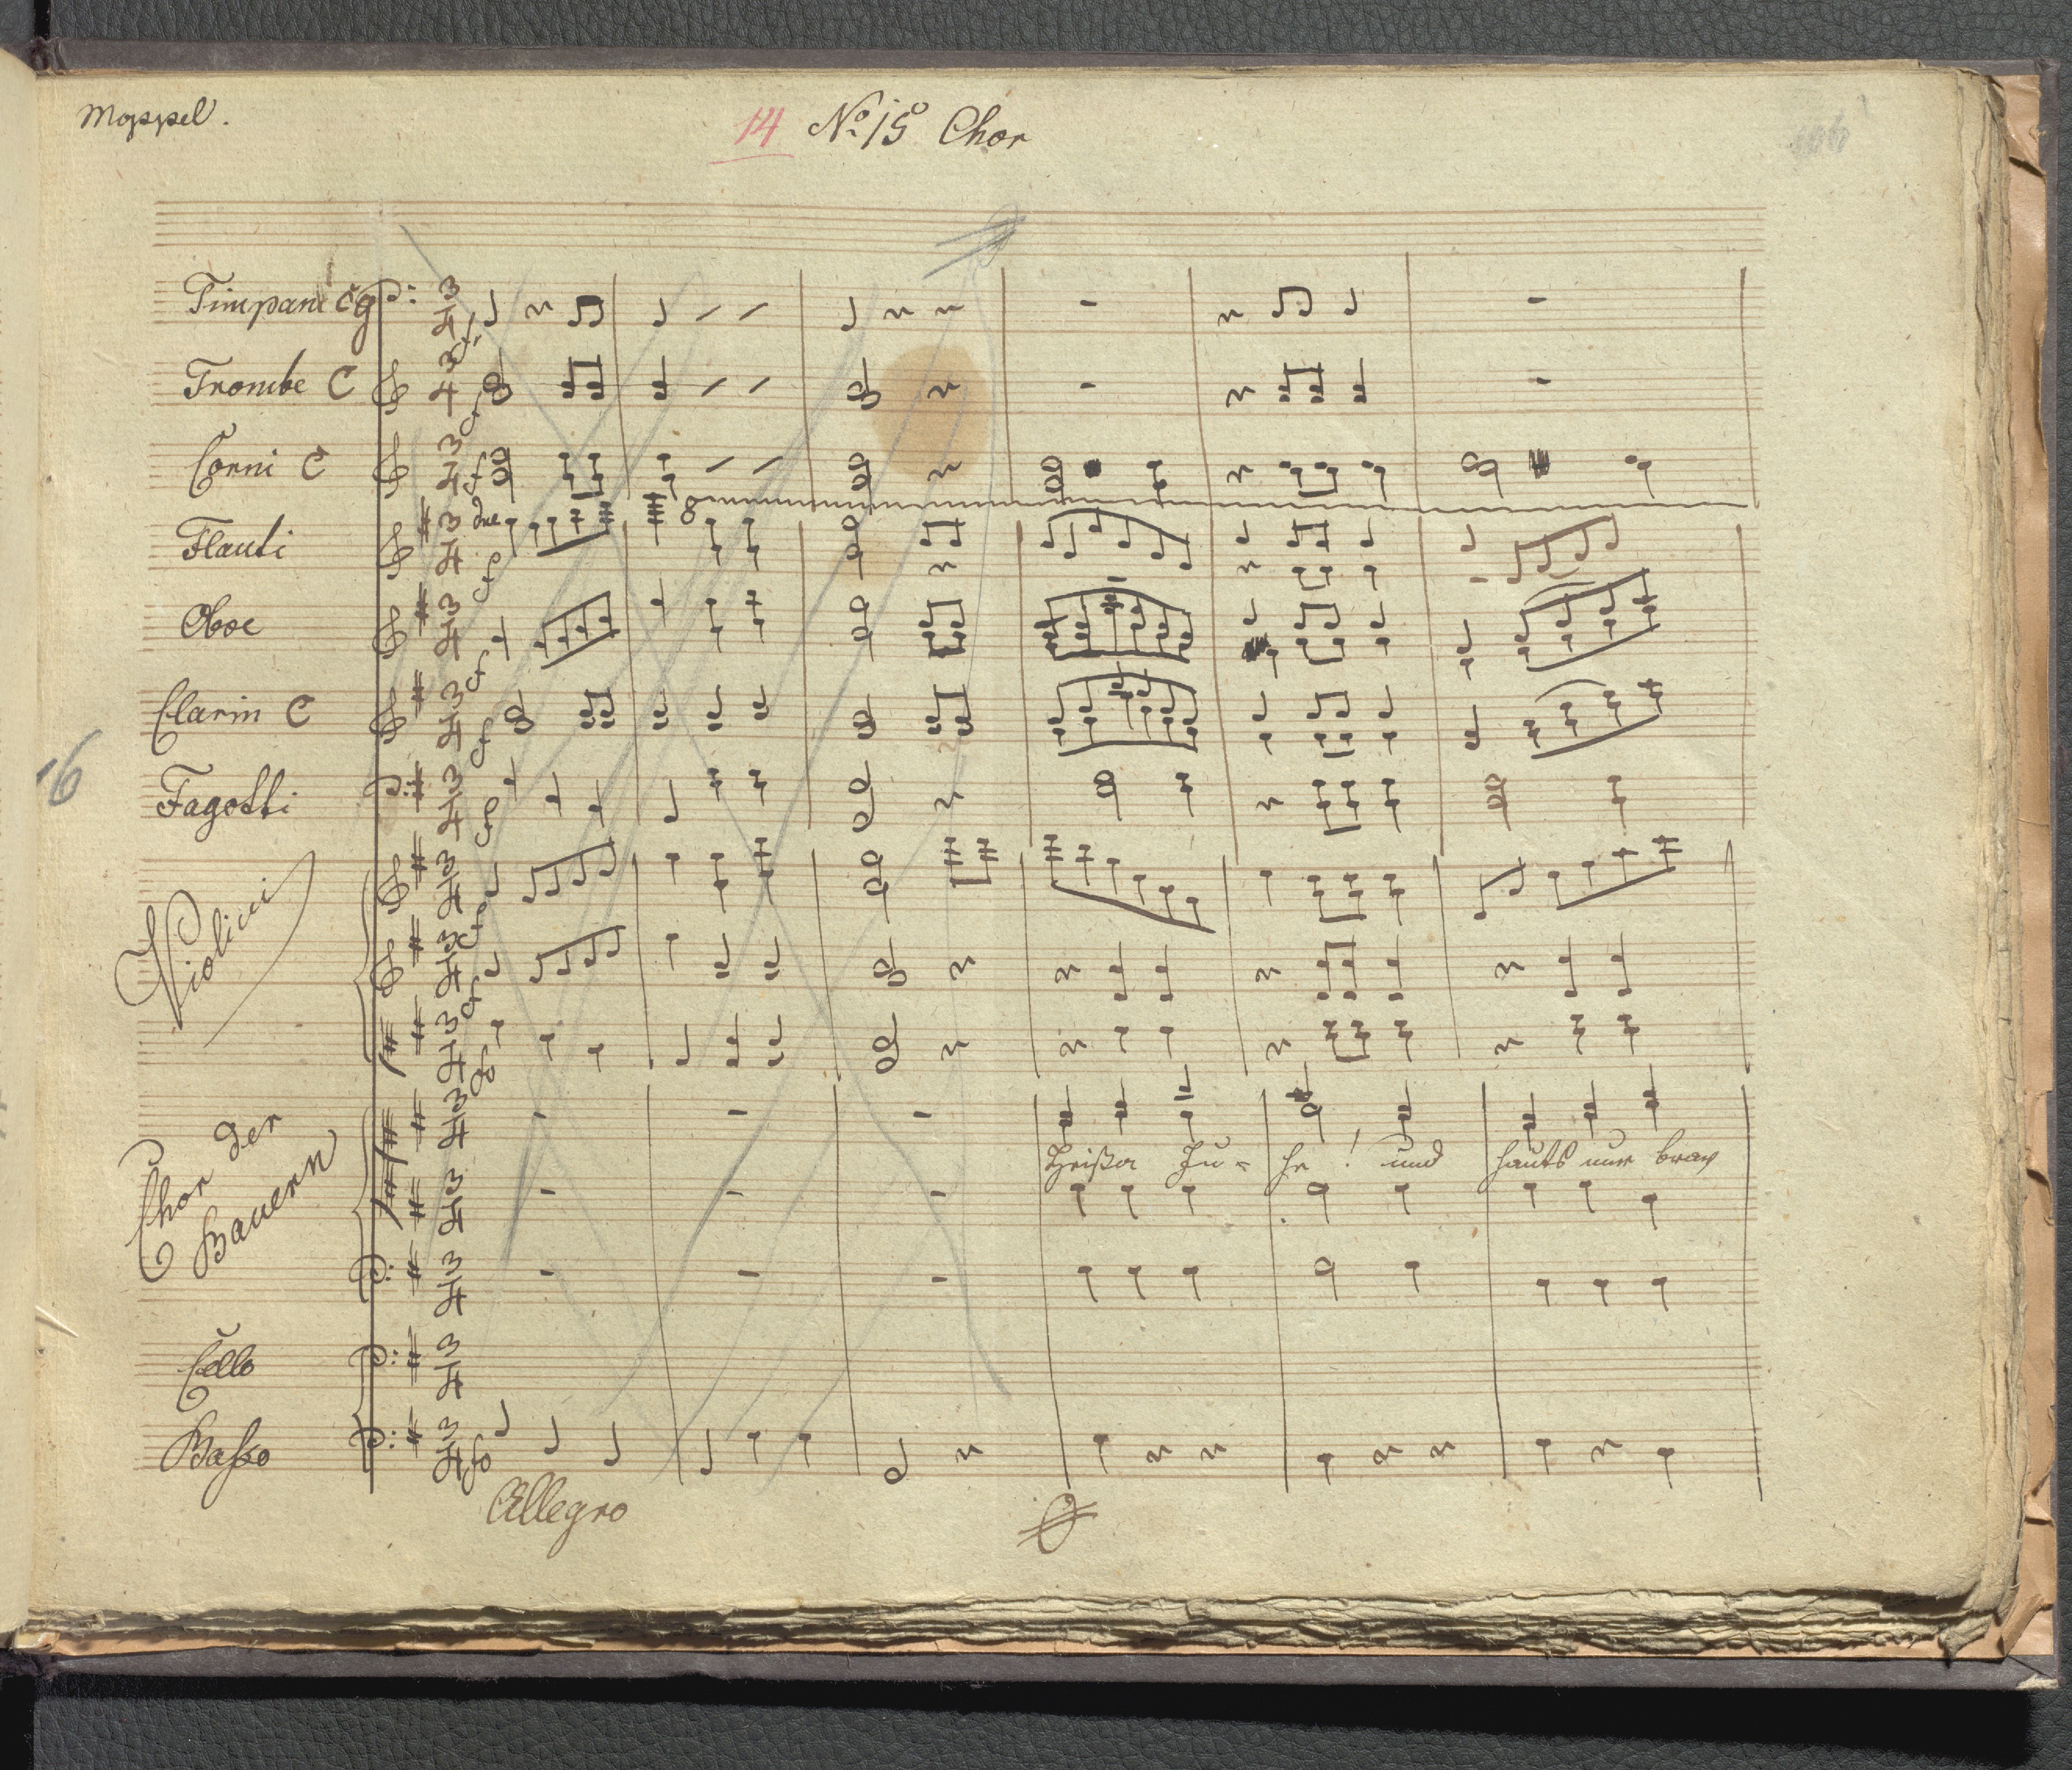 Moppel.
14 No 15 Chor
Timpani C g
Trombe C
Corni C
Flauti
Oboe
Clarin C
Fagotti
16
Violini
Chor der
Bauern
Heißa Ju- he! und hauts nur brav
Cello
Basso
Allegro